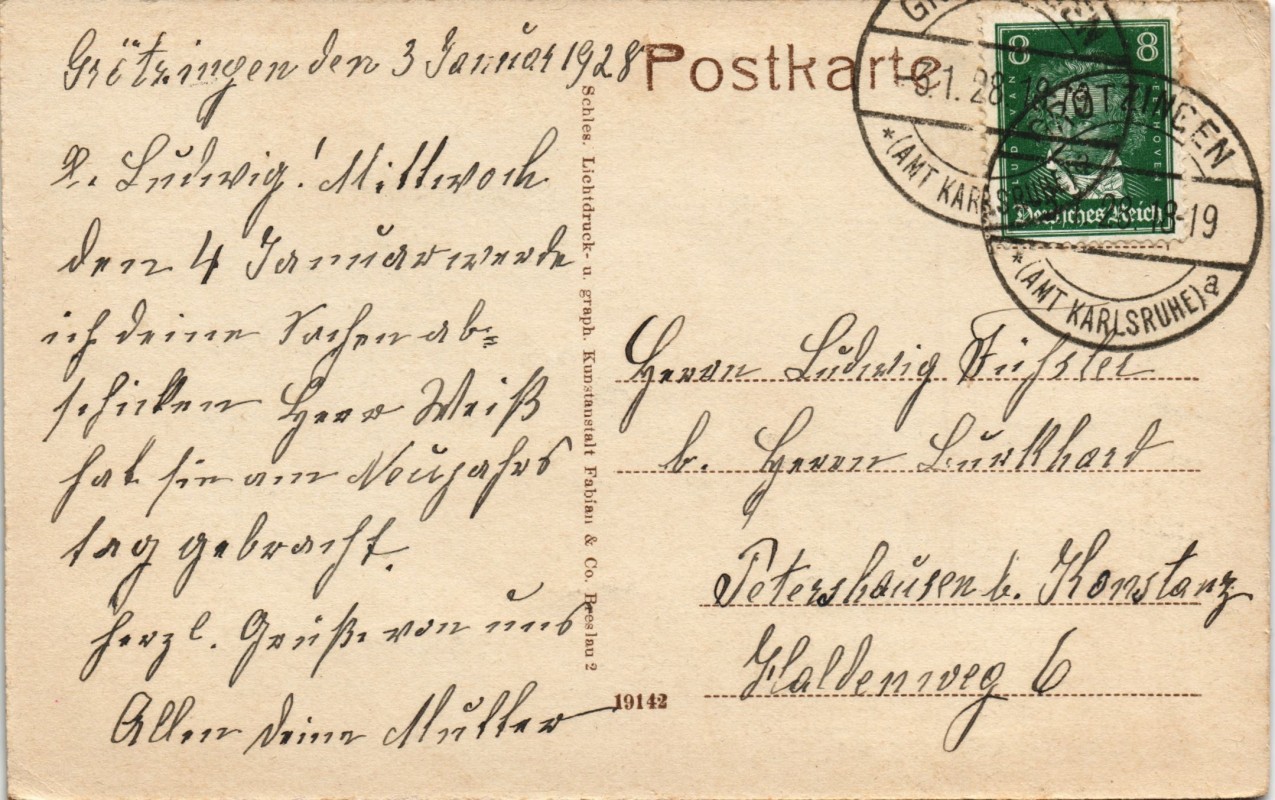 Grötzingen den 3 Januar 1928
L. Ludwig! Mittwoch
den 4 Januar werde
ich deine Sachen ab=
schicken Herr Weiß
hat sie am Neujahrs
tag gebracht.
herzl. Grüße von uns
Allen deine Mutter
Schles. Lichtdruck- u. graph. Kunstanstalt Fabian & Co. Breslau 2
19142
Postkarte
GRÖTZINGEN
-3.1.28.18-19
*(AMT KARLSRUHE)
8 8
LUDWIG VAN BEETHOVEN
Deutsches Reich
GRÖTZINGEN
28.18-19
*(AMT KARLSRUHE) a
Herrn Ludwig
b. Herrn Burkhard
Petershausen b. Konstanz
Haldenweg 6